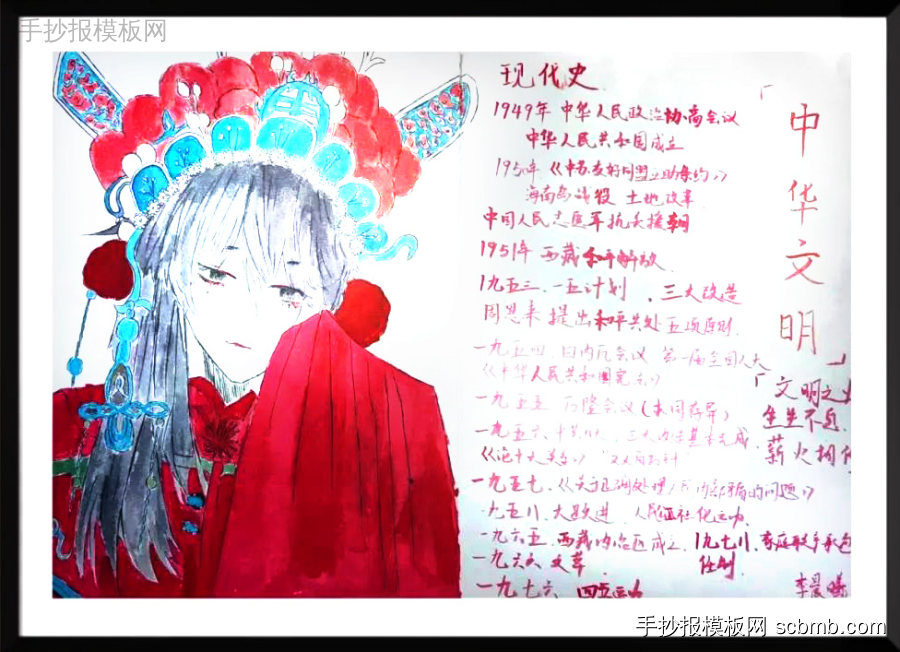 手抄报模板网
现代史
1949年 中华人民政治协商会议
中华人民共和国成立
1950年《中苏友好同盟互助条约》
海南岛战役 土地改革
中国人民志愿军抗美援朝
1951年 西藏和平解放
一九五三、一五计划、三大改造
周恩来提出和平共处五项原则
一九五四、日内瓦会议 第一届全国人大
《中华人民共和国宪法》
一九五五 万隆会议(求同存异)
一九五六 三大改造基本完成
《论十大关系》
一九五七、《关于正确处理人民内部矛盾的问题》
九五八、大跃进、人民公社化运动
一九六五、西藏自治区成立、1九七八、家庭联产承包
任制
一九六六 文革
一九七六 四五运动
「中华文明」
「文明之火
生生不息
薪火相传
李
手抄报模板网 scbmb.com